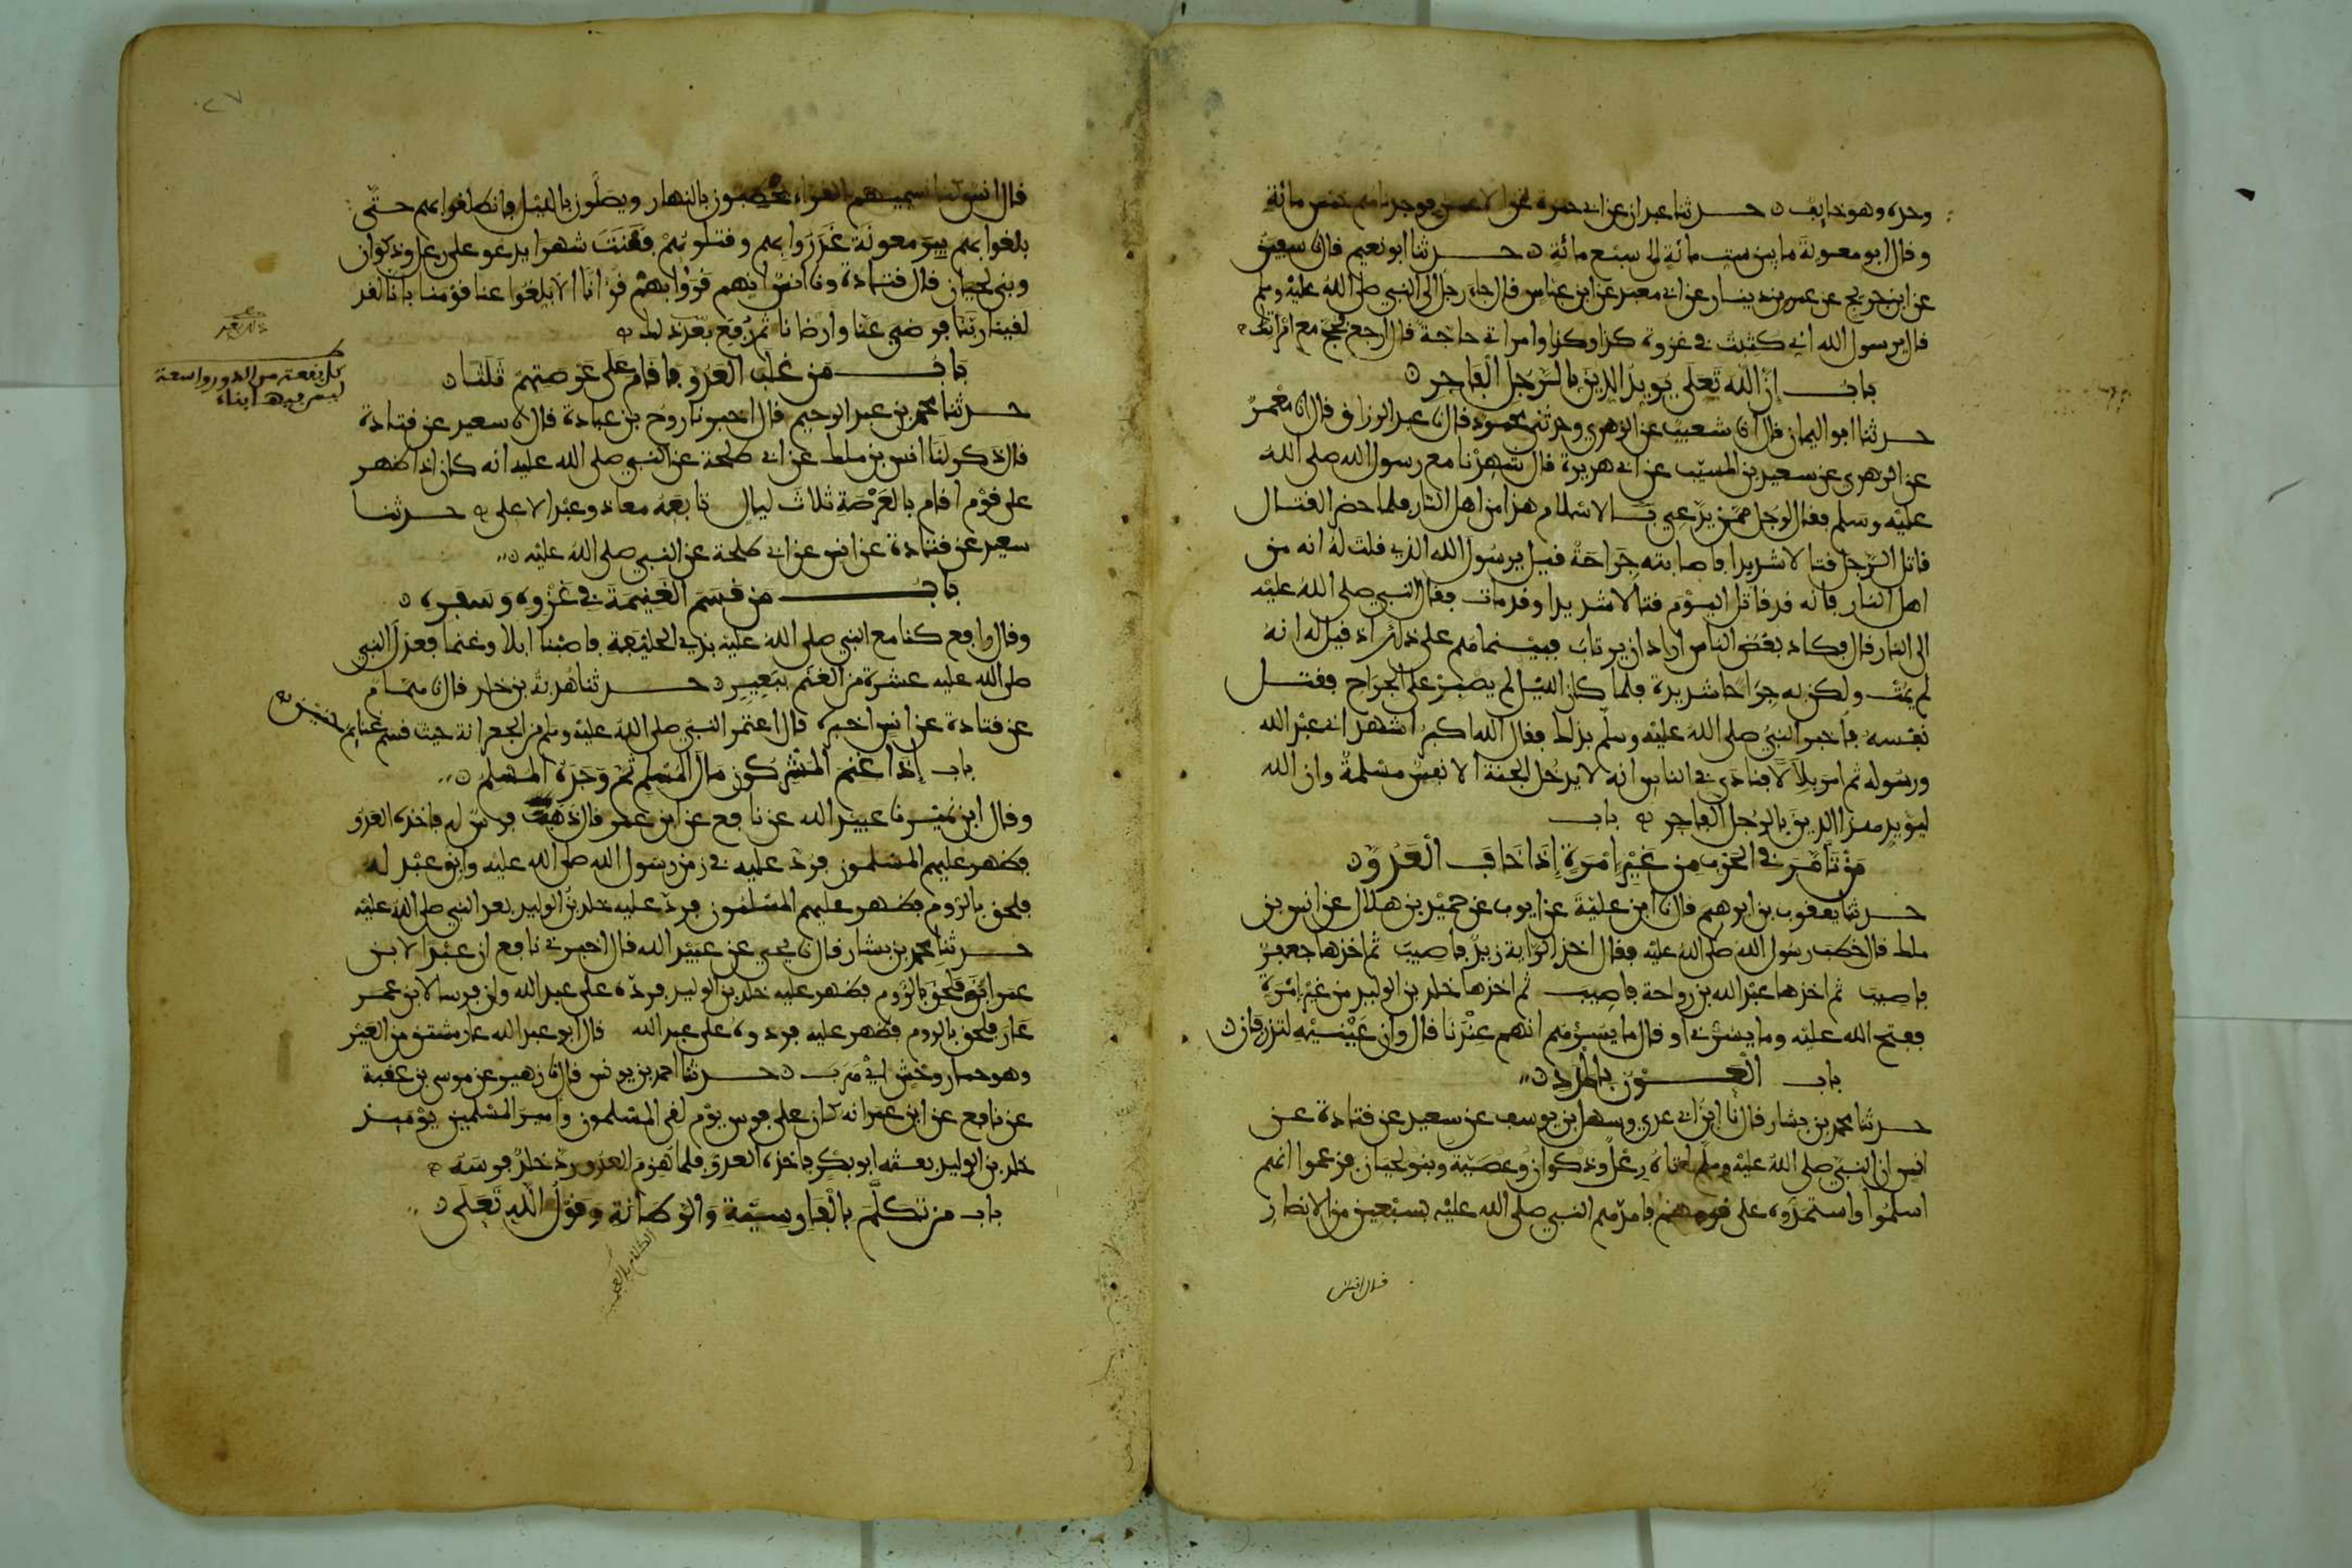 وحده وهو خايف حدثنا عبدان عن ابي حمزة عن الاعمش فوجدناهم خمس مائة
وقال ابو معوية ما بين ست مائة الى سبع مائة حدثنا ابو نعيم قال نا سفين
عن ابن جريج عن عمرو بن دينار عن ابي معبد عن ابن عباس قال جاء رجل الى النبي صلى الله عليه وسلم
فقال يرسول الله اني كتبت في غزوة كذا وكذا وامراتي حاجة قال ارجع فحج مع امراتك
باب ان الله تعلى يويد الدين بالرجل الفاجر
حدثنا ابو اليمان قال انا شعيب عن الزهري وحدثني محمود قال نا عبد الرزاق قال انا معمر
عن الزهري عن سعيد بن المسيب عن ابي هريرة قال شهدنا مع رسول الله صلى الله
عليه وسلم فقال لرجل ممن يدعي بالاسلام هذا من اهل النار فلما حضر القتال
قاتل الرجل قتالا شديدا فاصابته جراحة فقيل يرسول الله الذي قلت له انه من
اهل النار فانه قد قاتل اليوم قتالا شديدا وقد مات فقال النبي صلى الله عليه
الى النار قال فكاد بعض الناس اراد ان يرتاب فبينما هم على ذلك اذ قيل له انه
لم يمت ولكن به جراحا شديدة فلما كان الليل لم يصبر على الجراح فقتل
نفسه فاخبر النبي صلى الله عليه وسلم بذلك فقال الله اكبر اشهد اني عبد الله
ورسوله ثم امر بلالا فنادى في الناس انه لا يدخل الجنة الا نفس مسلمة وان الله
ليويد هذا الدين بالرجل الفاجر باب
من تامر في الحرب من غير امرة اذا خاف العدو
حدثنا يعقوب بن ابرهيم قال نا ابن علية عن ايوب عن حميد بن هلال عن انس بن
ملك قال خطب رسول الله صلى الله عليه فقال اخذ الراية زيد فاصيب ثم اخذها جعفر
فاصيب ثم اخذها عبد الله بن رواحة فاصيب ثم اخذها خلد بن الوليد من غير امرة
ففتح الله عليه وما يسرني او قال ما يسرهم انهم عندنا قال وان عينيه لتذرفان
باب العون بالمدد
حدثنا محمد بن بشار قال نا ابن ابي عدي وسهل بن يوسف عن سعيد عن قتادة عن
انس ان النبي صلى الله عليه وسلم اتاه رعل وذكوان وعصية وبنو لحيان فزعموا انهم
اسلموا واستمدوه على قومهم فامدهم النبي صلى الله عليه بسبعين من الانصار
قال انس
قال انس كنا نسميهم القراء يحطبون بالنهار ويصلون بالليل فانطلقوا بهم حتى
بلغوا بهم بير معونة غدروا بهم وقتلوهم فقنت شهرا يدعو على رعل وذكوان
وبني لحيان قال قتادة ونا انس انهم قروا بهم قرانا الا بلغوا عنا قومنا بانا لقد
لقينا ربنا فرضي عنا وارضانا ثم رفع بعد ذلك
باب من غلب العدو فاقام على عرصتهم ثلثا
حدثنا محمد بن عبد الرحيم قال اخبرنا روح بن عبادة قال نا سعيد عن قتادة
قال ذكر لنا انس بن ملك عن ابي طلحة عن النبي صلى الله عليه انه كان اذا ظهر
على قوم اقام بالعرصة ثلاث ليال تابعه معاذ وعبد الاعلى حدثنا
سعيد عن قتادة عن انس عن ابي طلحة عن النبي صلى الله عليه
باب من قسم الغنيمة في غزوه وسفره
وقال رافع كنا مع النبي صلى الله عليه بذي الحليفة فاصبنا ابلا وغنما فعدل النبي
صلى الله عليه عشرة من الغنم ببعير حدثنا هدبة بن خلد قال نا همام
عن قتادة عن انس اخبره قال اعتمر النبي صلى الله عليه وسلم من الجعرانة حيث قسم غنايم حنين
باب اذا غنم المشركون مال المسلم ثم وجده المسلم
وقال ابن نمير نا عبيد الله عن نافع عن ابن عمر قال ذهب فرس له فاخذه العدو
فظهر عليهم المسلمون فرد عليه في زمن رسول الله صلى الله عليه وابق عبد له
فلحق بالروم فظهر عليهم المسلمون فرد عليه خلد بن الوليد بعد النبي صلى الله عليه
حدثنا محمد بن بشار قال نا يحيى عن عبيد الله قال اخبرني نافع ان عبدا لابن
عمر ابق فلحق بالروم فظهر عليه خلد بن الوليد فرده على عبد الله وان فرسا لابن عمر
عار فلحق بالروم فظهر عليه فردوه على عبد الله قال ابو عبد الله عار مشتق من العير
وهو حمار وحش اي هرب حدثنا احمد بن يونس قال نا زهير عن موسى بن عقبة
عن نافع عن ابن عمر انه كان على فرس يوم لقي المسلمون وامير المسلمين يوميذ
خلد بن الوليد بعثه ابو بكر فاخذه العدو فلما هزم العدو رد خلد فرسه
باب من تكلم بالفارسية والرطانة وقول الله تعلى
كل بقعة من الدور واسعة
ليس فيها بناء
الكلام بالعجمية